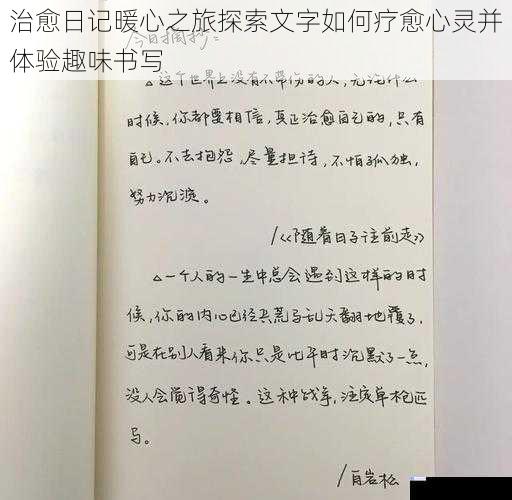 治愈日记暖心之旅探索文字如何疗愈心灵并
体验趣味书写
今日摘抄:
△这个世界上没有不带伤的人,无论什么
时候,你都要相信,真正治愈自己的,只有
自己。不去抱怨,尽量担待,不怕孤独,
努力沉淀。
/《随着日子往前走》
△一个人的一生中总会遇到这样的时
候,你的内心已经兵荒马乱天翻地覆了,
可是在别人看来你只是比平时沉默了一点,
没人会觉得奇怪。这种战争,注定单枪匹
马。
/白岩松